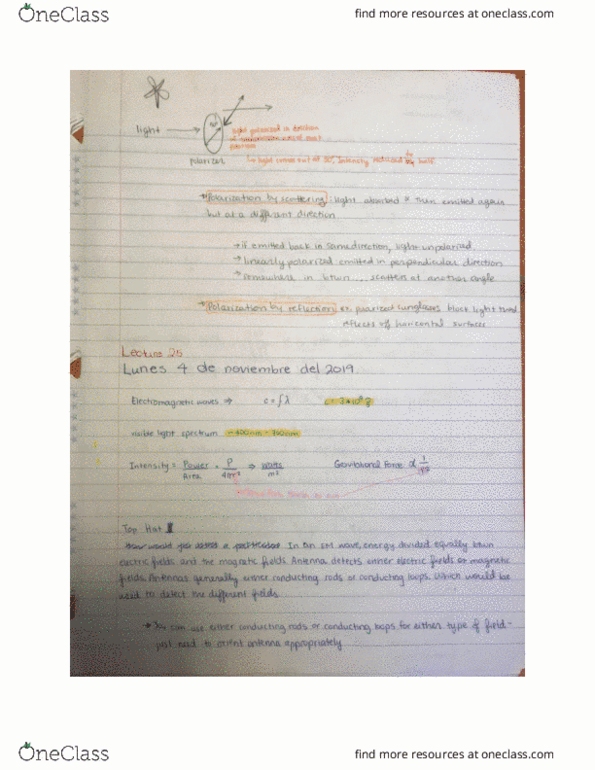 OneClass
find more resources at oneclass.com
light
polarizer
light polarized in direction
↳ light comes out at 30°, intensity reduced by half
→ Polarization by scattering: light absorbed & then emitted again
but at a different direction
→ if emitted back in same direction, light unpolarized
→ linearly polarized emitted in perpendicular direction
→ somewhere in btwn ... scatters at another angle
→ Polarization by reflection ex. polarized sunglasses block light that
reflects off horizontal surfaces
Lecture 25
Lunes 4 de noviembre del 2019
Electromagnetic waves → c = fλ
visible light spectrum ~400nm - 700nm
Intensity = Power/Area = P/4πr² → watts/m² Gravitational Force α 1/r²
Top Hat
In an EM wave, energy divided equally btwn
electric fields and the magnetic fields. Antenna detects either electric fields or magnetic
fields. Antennas generally either conducting rods or conducting loops, which would be
used to detect the different fields.
→ You can use either conducting rods or conducting loops for either type of field -
just need to orient antenna appropriately
OneClass
find more resources at oneclass.com